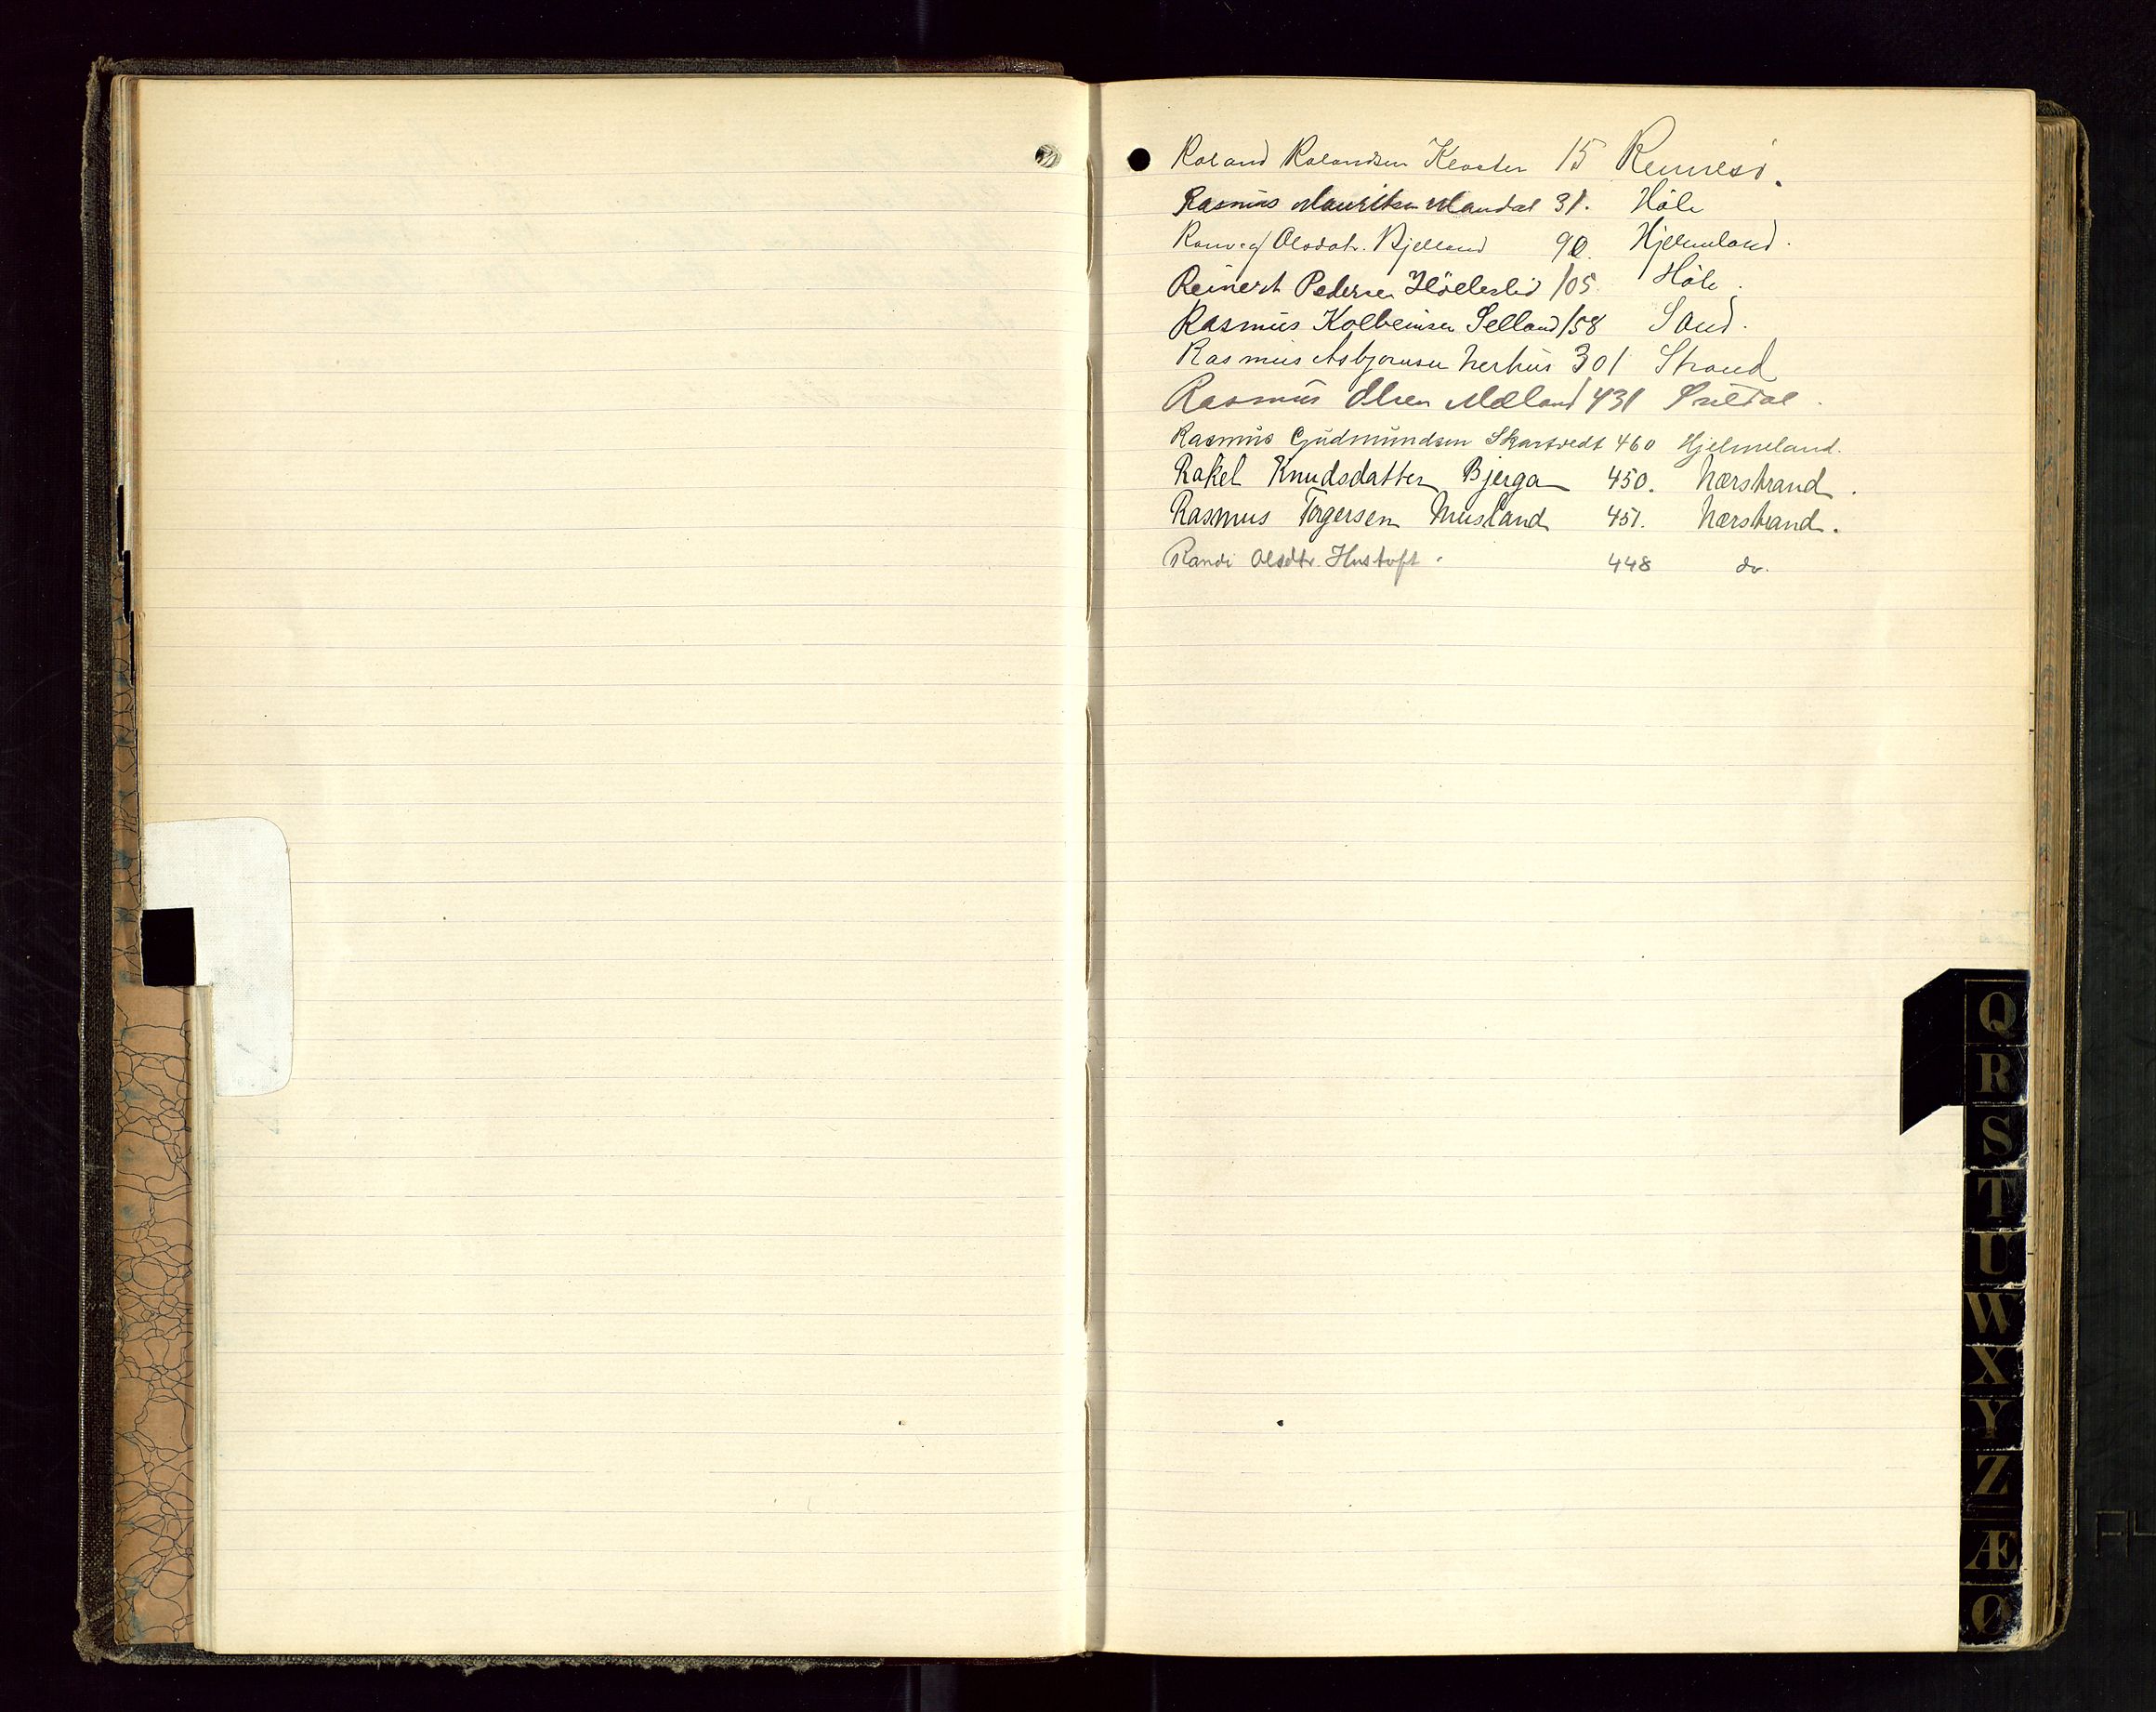 Roland Rolandsen Kloster 15 Rennesö.
Rasmus Mauritsen Mandal 31. Höle
Ranveg Olsdatr. Bjelland 90. Hjelmeland.
Reinert Pedersen Hölleslid 105. Höle.
Rasmus Kolbeinsen Selland 158 Sand.
Rasmus Asbjornsen Nerhus 301 Strand
Rasmus Olsen Mæland 431 Suldal.
Rasmus Gudmundsen Skartvedt 460 Hjelmeland.
Rakel Knudsdatter Bjerga 450. Nærstrand.
Rasmus Torgersen Musland 451. Nærstrand.
Randi Olsdtr. Hustoft. 448 do.
Q
R
S
T
U
W
X
Y
Z
Æ
Ø